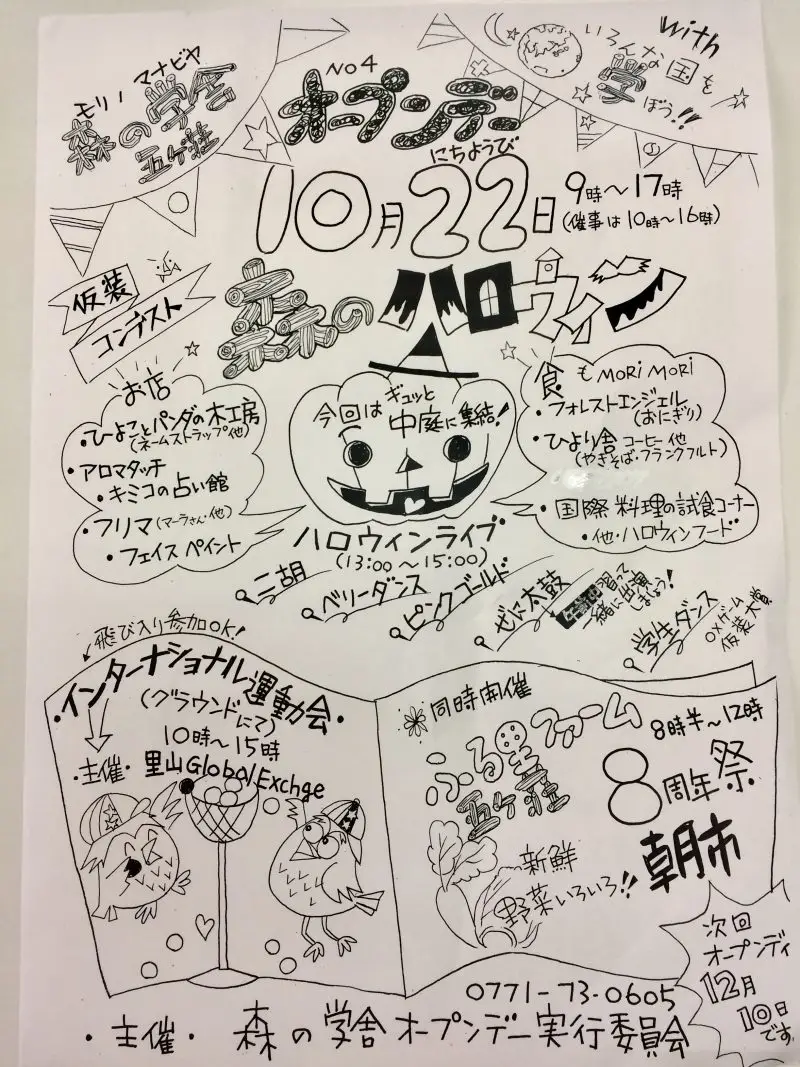 モリノ マナビヤ
森の学舎
五ケ荘
No4
オープンデー
with
いろんな国を
学ぼう!!
にちようび
10月22日
9時～17時
(催事は10時～16時)
仮装
コンテスト
森のハロウィン
お店
・ひよことパンダの木工房
(ネームストラップ他)
・アロマタッチ
・キミコの占い館
・フリマ(マーラさん・他)
・フェイスペイント
今回はギュッと
中庭に集結!
食もMORI MORI
・フォレストエンジェル
(おにぎり)
・ひより舎 コーヒー他
(やきそば・フランクフルト)
・国際料理の試食コーナー
・他・ハロウィンフード
ハロウィンライブ
(13:00～15:00)
二胡
ベリーダンス
ピンクゴールド
ぜに太鼓
習って
一緒に出演
しましょう!
学生ダンス
○×ゲーム
仮装大賞
飛び入り参加OK!
・インターナショナル運動会・
(グラウンドにて)
10時～15時
・主催・
里山Global Exchge
同時開催
ふる里ファーム
五ケ荘
8時半～12時
8周年祭
朝市
新鮮
野菜いろいろ!!
次回
オープンディ
12月
10日
です
0771-73-0605
・主催・ 森の学舎オープンデー実行委員会